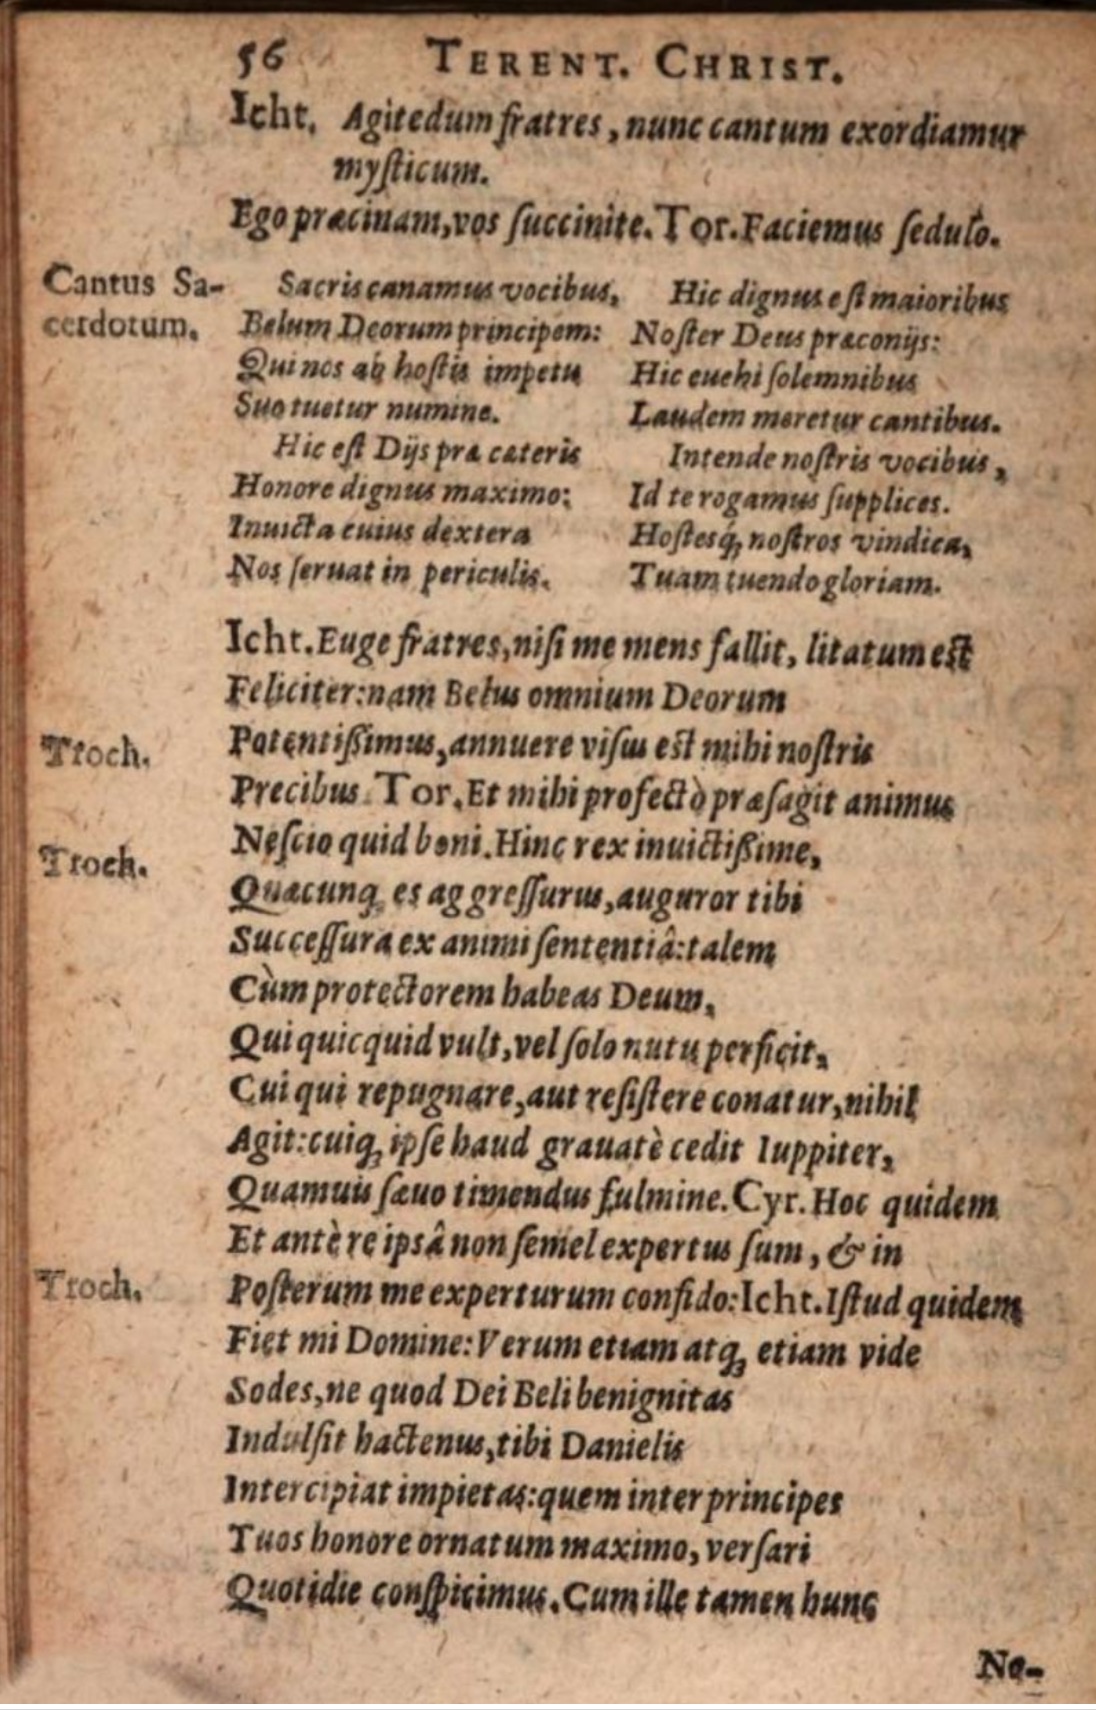 56 TERENT. CHRIST.
Icht. Agitedum fratres, nunc cantum exordiamur
myſticum.
Ego præcinam, vos ſuccinite. Tor. Faciemus ſedulò.
Cantus Sa-
cerdotum.
Sacris canamus vocibus,
Belum Deorum principem:
Qui nos ab hoſtis impetu
Suo tuetur numine.
Hic eſt Dijs præ cæteris
Honore dignus maximo:
Inuicta cuius dextera
Nos ſeruat in periculis.
Hic dignus eſt maioribus
Noſter Deus præconijs:
Hic euehi ſolemnibus
Laudem meretur cantibus.
Intende noſtris vocibus,
Id te rogamus ſupplices.
Hoſtesq́; noſtros vindica,
Tuam tuendo gloriam.
Icht. Euge fratres, niſi me mens fallit, litatum eſt
Feliciter: nam Belus omnium Deorum
Troch. Potentißimus, annuere viſus eſt mihi noſtris
Precibus. Tor. Et mihi profectò præſagit animus
Troch. Neſcio quid boni. Hinc rex inuictißime,
Quæcunq; es aggreſſurus, auguror tibi
Succeſſura ex animi ſententiâ: talem
Cùm protectorem habeas Deum,
Qui quicquid vult, vel ſolo nutu perficit,
Cui qui repugnare, aut reſiſtere conatur, nihil
Agit: cuiq; ipſe haud grauatè cedit Iuppiter,
Quamuis ſæuo timendus fulmine. Cyr. Hoc quidem
Et antè re ipsâ non ſemel expertus ſum, & in
Troch. Poſterum me experturum confido: Icht. Iſtud quidem
Fiet mi Domine: Verum etiam atq; etiam vide
Sodes, ne quod Dei Beli benignitas
Indulſit hactenus, tibi Danielis
Intercipiat impietas: quem inter principes
Tuos honore ornatum maximo, verſari
Quotidie conſpicimus. Cum ille tamen hunc
No-